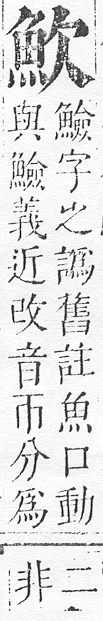 䲓字之譌舊註魚口動
與䲓義近改音而分爲
二
非